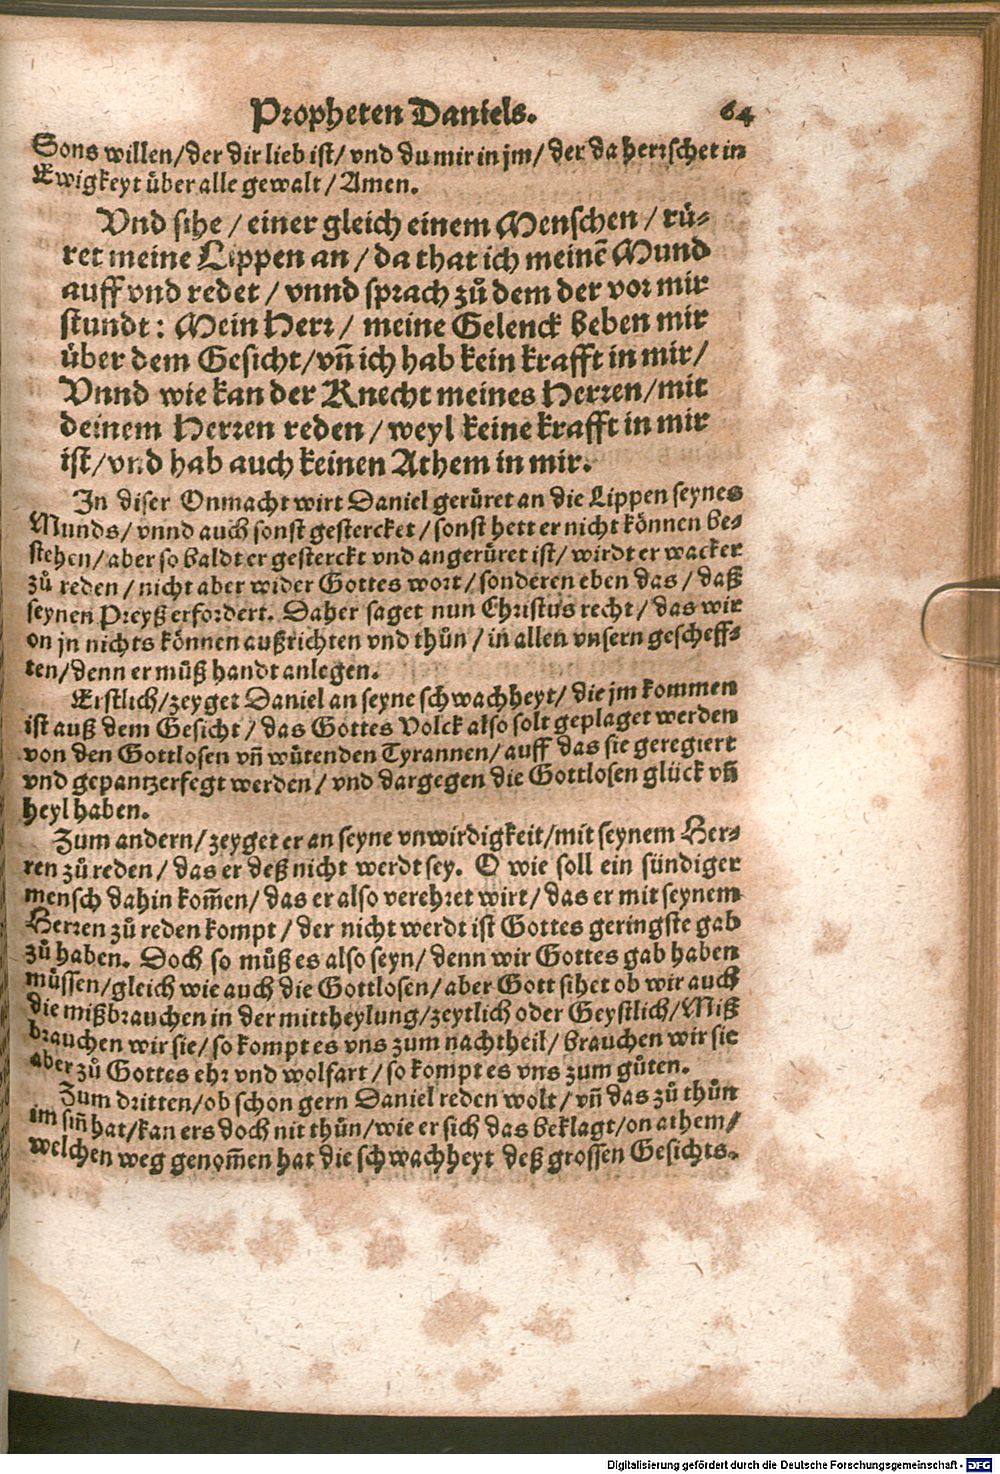 Propheten Daniels. 64
Sons willen/der dir lieb ist/ vnd du mir in jm/ der da herrschet in
Ewigkeyt über alle gewalt/ Amen.
Vnd sihe / einer gleich einem Menschen / rü⸗
ret meine Lippen an / da that ich meinē Mund
auff vnd redet / vnnd sprach zů dem der vor mir
stundt: Mein Herr/ meine Gelenck beben mir
über dem Gesicht/vñ ich hab kein krafft in mir/
Vnnd wie kan der Knecht meines Herren/mit
deinem Herren reden / weyl keine krafft in mir
ist/vnd hab auch keinen Athem in mir.
In diser Onmacht wirt Daniel gerüret an die Lippen seynes
Munds/ vnnd auch sonst gestercket / sonst hett er nicht können be⸗
stehen/ aber so baldt er gesterckt vnd angerüret ist/ wirdt er wacker
zů reden / nicht aber wider Gottes wort/ sonderen eben das / daß
seynen Preyß erfordert. Daher saget nun Christus recht/ das wir
on jn nichts können außrichten vnd thůn / in allen vnsern gescheff⸗
ten/denn er můß handt anlegen.
Erstlich/zeyget Daniel an seyne schwachheyt/ die jm kommen
ist auß dem Gesicht / das Gottes Volck also solt geplaget werden
von den Gottlosen vñ wütenden Tyrannen/ auff das sie geregiert
vnd gepantzerfegt werden/ vnd dargegen die Gottlosen glück vñ
heyl haben.
Zum andern/ zeyget er an seyne vnwirdigkeit/mit seynem Her⸗
ren zů reden/ das er deß nicht werdt sey. O wie soll ein sündiger
mensch dahin kom̃en/ das er also verehret wirt/ das er mit seynem
Herren zů reden kompt / der nicht werdt ist Gottes geringste gab
zů haben. Doch so můß es also seyn/ denn wir Gottes gab haben
müssen/gleich wie auch die Gottlosen/ aber Gott sihet ob wir auch
die mißbrauchen in der mittheylung/zeytlich oder Geystlich/Miß
brauchen wir sie/ so kompt es vns zum nachtheil/ brauchen wir sie
aber zů Gottes ehr vnd wolfart / so kompt es vns zum gůten.
Zum dritten/ ob schon gern Daniel reden wolt/ vñ das zů thůn
im siñ hat/kan ers doch nit thůn/ wie er sich das beklagt/on athem/
welchen weg genom̃en hat die schwachheyt deß grossen Gesichts.
Digitalisierung gefördert durch die Deutsche Forschungsgemeinschaft - DFG